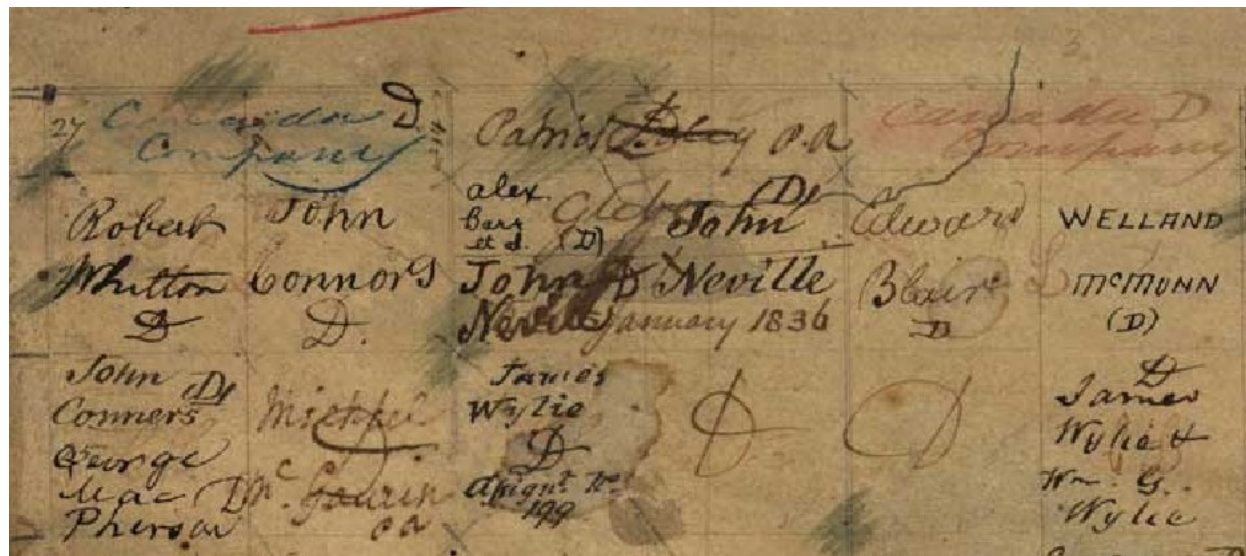 3
27 Canada D
Company
Patrick P.A
Canada D
Company
Robert
Whitton
D
John
Connors
D.
alex.
Glebe
(D)
John
Nevills
D
John
Neville
January 1836
Edward
Blair
D
WELLAND
McMUNN
(D)
John D
Conners
George
Mac D
Pherson
Michael
Mc
James
Wylie
D
199
D
D
D
James
Wylie &
Wm. G.
Wylie